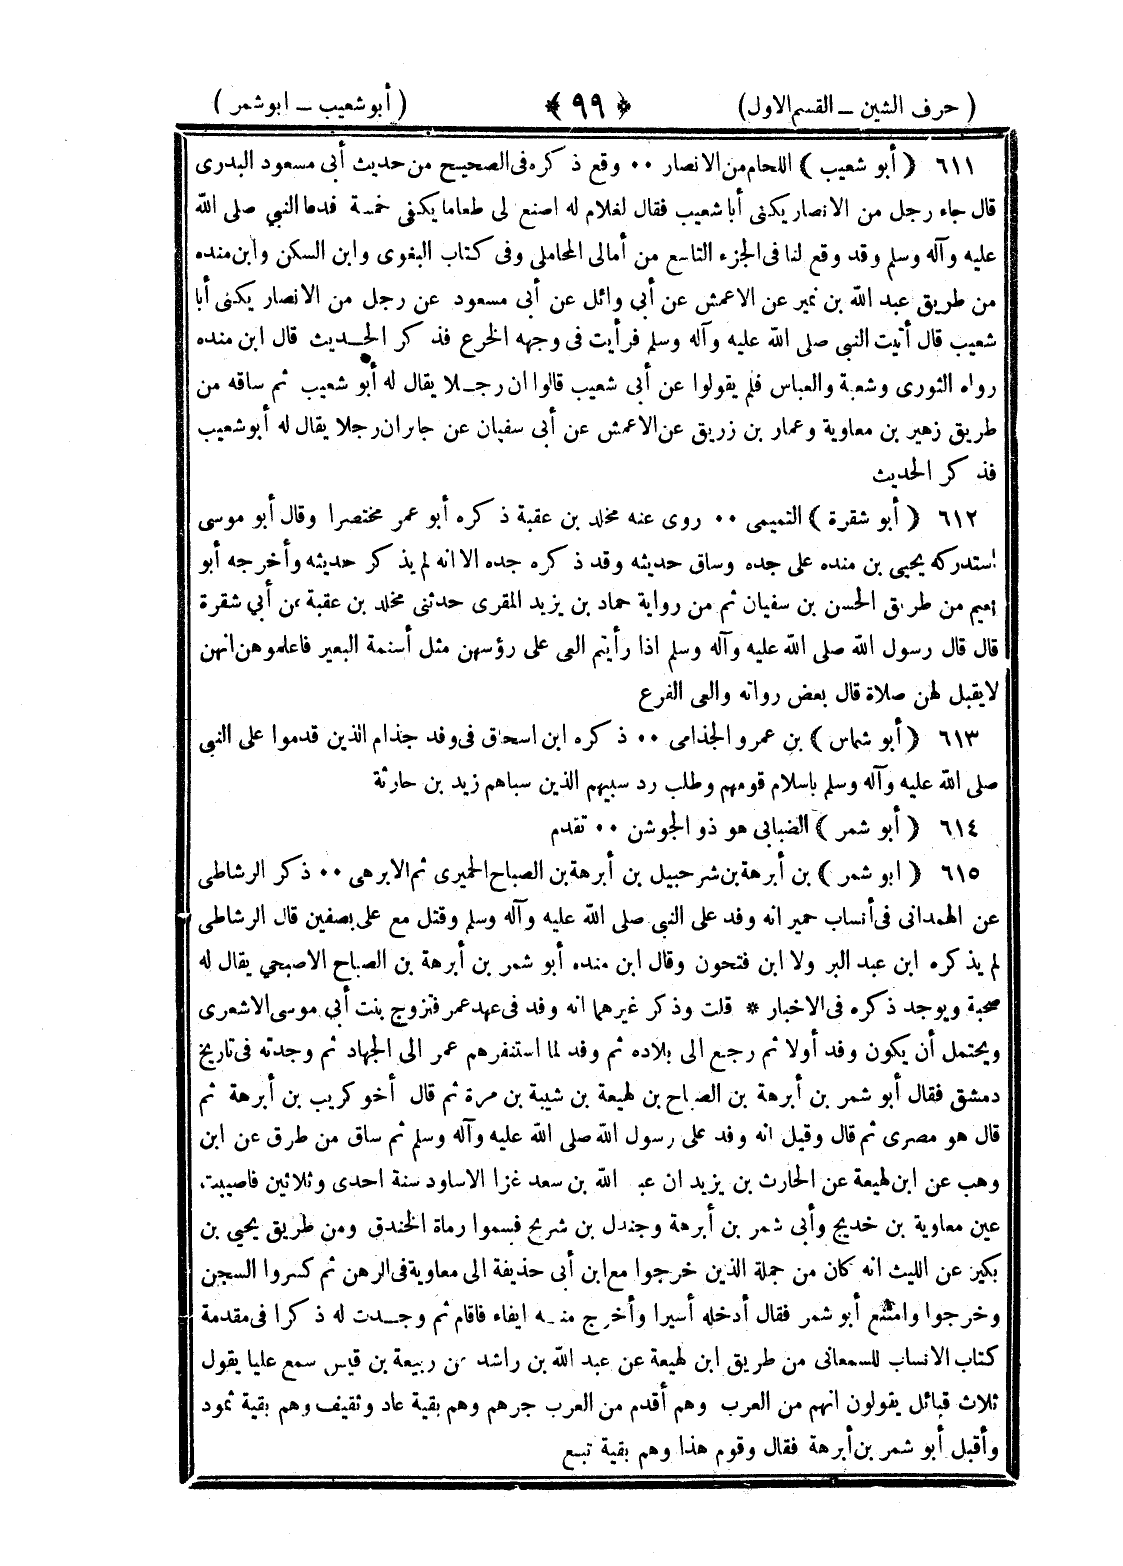 ( حرف الشين ــ القسم الاول ) ﴿ ٩٩ ﴾ ( أبو شعيب ــ ابو شمر )
٦١١ ( أبو شعيب ) اللحام من الانصار ٠٠ وقع ذكره فى الصحيح من حديث أبى مسعود البدرى
قال جاء رجل من الانصار يكنى أبا شعيب فقال لغلام له اصنع لى طعاما يكفى خمسة فدعا النبي صلى الله
عليه وآله وسلم وقد وقع لنا فى الجزء التاسع من أمالى المحاملى وفى كتاب البغوى وابن السكن وابن منده
من طريق عبد الله بن نمير عن الاعمش عن أبى وائل عن أبى مسعود عن رجل من الانصار يكنى أبا
شعيب قال أتيت النبى صلى الله عليه وآله وسلم فرأيت فى وجهه الخرع فذكر الحديث قال ابن منده
رواه الثورى وشعبة والعباس فلم يقولوا عن أبى شعيب قالوا ان رجلا يقال له أبو شعيب ثم ساقه من
طريق زهير بن معاوية وعمار بن زريق عن الاعمش عن أبى سفيان عن جابر ان رجلا يقال له أبو شعيب
فذكر الحديث
٦١٢ ( أبو شقرة ) التميمى ٠٠ روى عنه مخلد بن عقبة ذكره أبو عمر مختصرا وقال أبو موسى
استدركه يحيى بن منده على جده وساق حديثه وقد ذكره جده الا انه لم يذكر حديثه وأخرجه أبو
نعيم من طريق الحسن بن سفيان ثم من رواية حماد بن يزيد المقرى حدثنى مخلد بن عقبة عن أبي شقرة
قال قال رسول الله صلى الله عليه وآله وسلم اذا رأيتم العى على رؤسهن مثل أسنمة البعير فاعلموهن انهن
لا يقبل لهن صلاة قال بعض رواته والعى الفرع
٦١٣ ( أبو شماس ) بن عمرو الجذامى ٠٠ ذكره ابن اسحاق فى وفد جذام الذين قدموا على النبي
صلى الله عليه وآله وسلم باسلام قومهم وطلب رد سبيهم الذين سباهم زيد بن حارثة
٦١٤ ( أبو شمر ) الضبابى هو ذو الجوشن ٠٠ تقدم
٦١٥ ( ابو شمر ) بن أبرهة بن شرحبيل بن أبرهة بن الصباح الحميرى ثم الابرهى ٠٠ ذكر الرشاطى
عن الهمدانى فى أنساب حمير انه وفد على النبي صلى الله عليه وآله وسلم وقتل مع على بصفين قال الرشاطى
لم يذكره ابن عبد البر ولا ابن فتحون وقال ابن منده أبو شمر بن أبرهة بن الصباح الاصبحي يقال له
صحبة ويوجد ذكره فى الاخبار * قلت وذكر غيرهما انه وفد فى عهد عمر فتزوج بنت أبي موسى الاشعرى
ويحتمل أن يكون وفد أولا ثم رجع الى بلاده ثم وفد لما استنفرهم عمر الى الجهاد ثم وجدته فى تاريخ
دمشق فقال أبو شمر بن أبرهة بن الصباح بن لهيعة بن شيبة بن مرة ثم قال أخو كريب بن أبرهة ثم
قال هو مصرى ثم قال وقيل انه وفد على رسول الله صلى الله عليه وآله وسلم ثم ساق من طرق عن ابن
وهب عن ابن لهيعة عن الحارث بن يزيد ان عبد الله بن سعد غزا الاساود سنة احدى وثلاثين فاصيبت
عين معاوية بن خديج وأبى شمر بن أبرهة وجندل بن شريح فسموا رماة الخندق ومن طريق يحيي بن
بكير عن الليث انه كان من جملة الذين خرجوا مع ابن أبى حذيفة الى معاوية فى الرهن ثم كسروا السجن
وخرجوا وامتنع أبو شمر فقال أدخله أسيرا وأخرج منه ايفاء فاقام ثم وجدت له ذكرا فى مقدمة
كتاب الانساب للسمعانى من طريق ابن لهيعة عن عبد الله بن راشد عن ربيعة بن قيس سمع عليا يقول
ثلاث قبائل يقولون انهم من العرب وهم أقدم من العرب جرهم وهم بقية عاد وثقيف وهم بقية ثمود
وأقبل أبو شمر بن أبرهة فقال وقوم هذا وهم بقية تبع